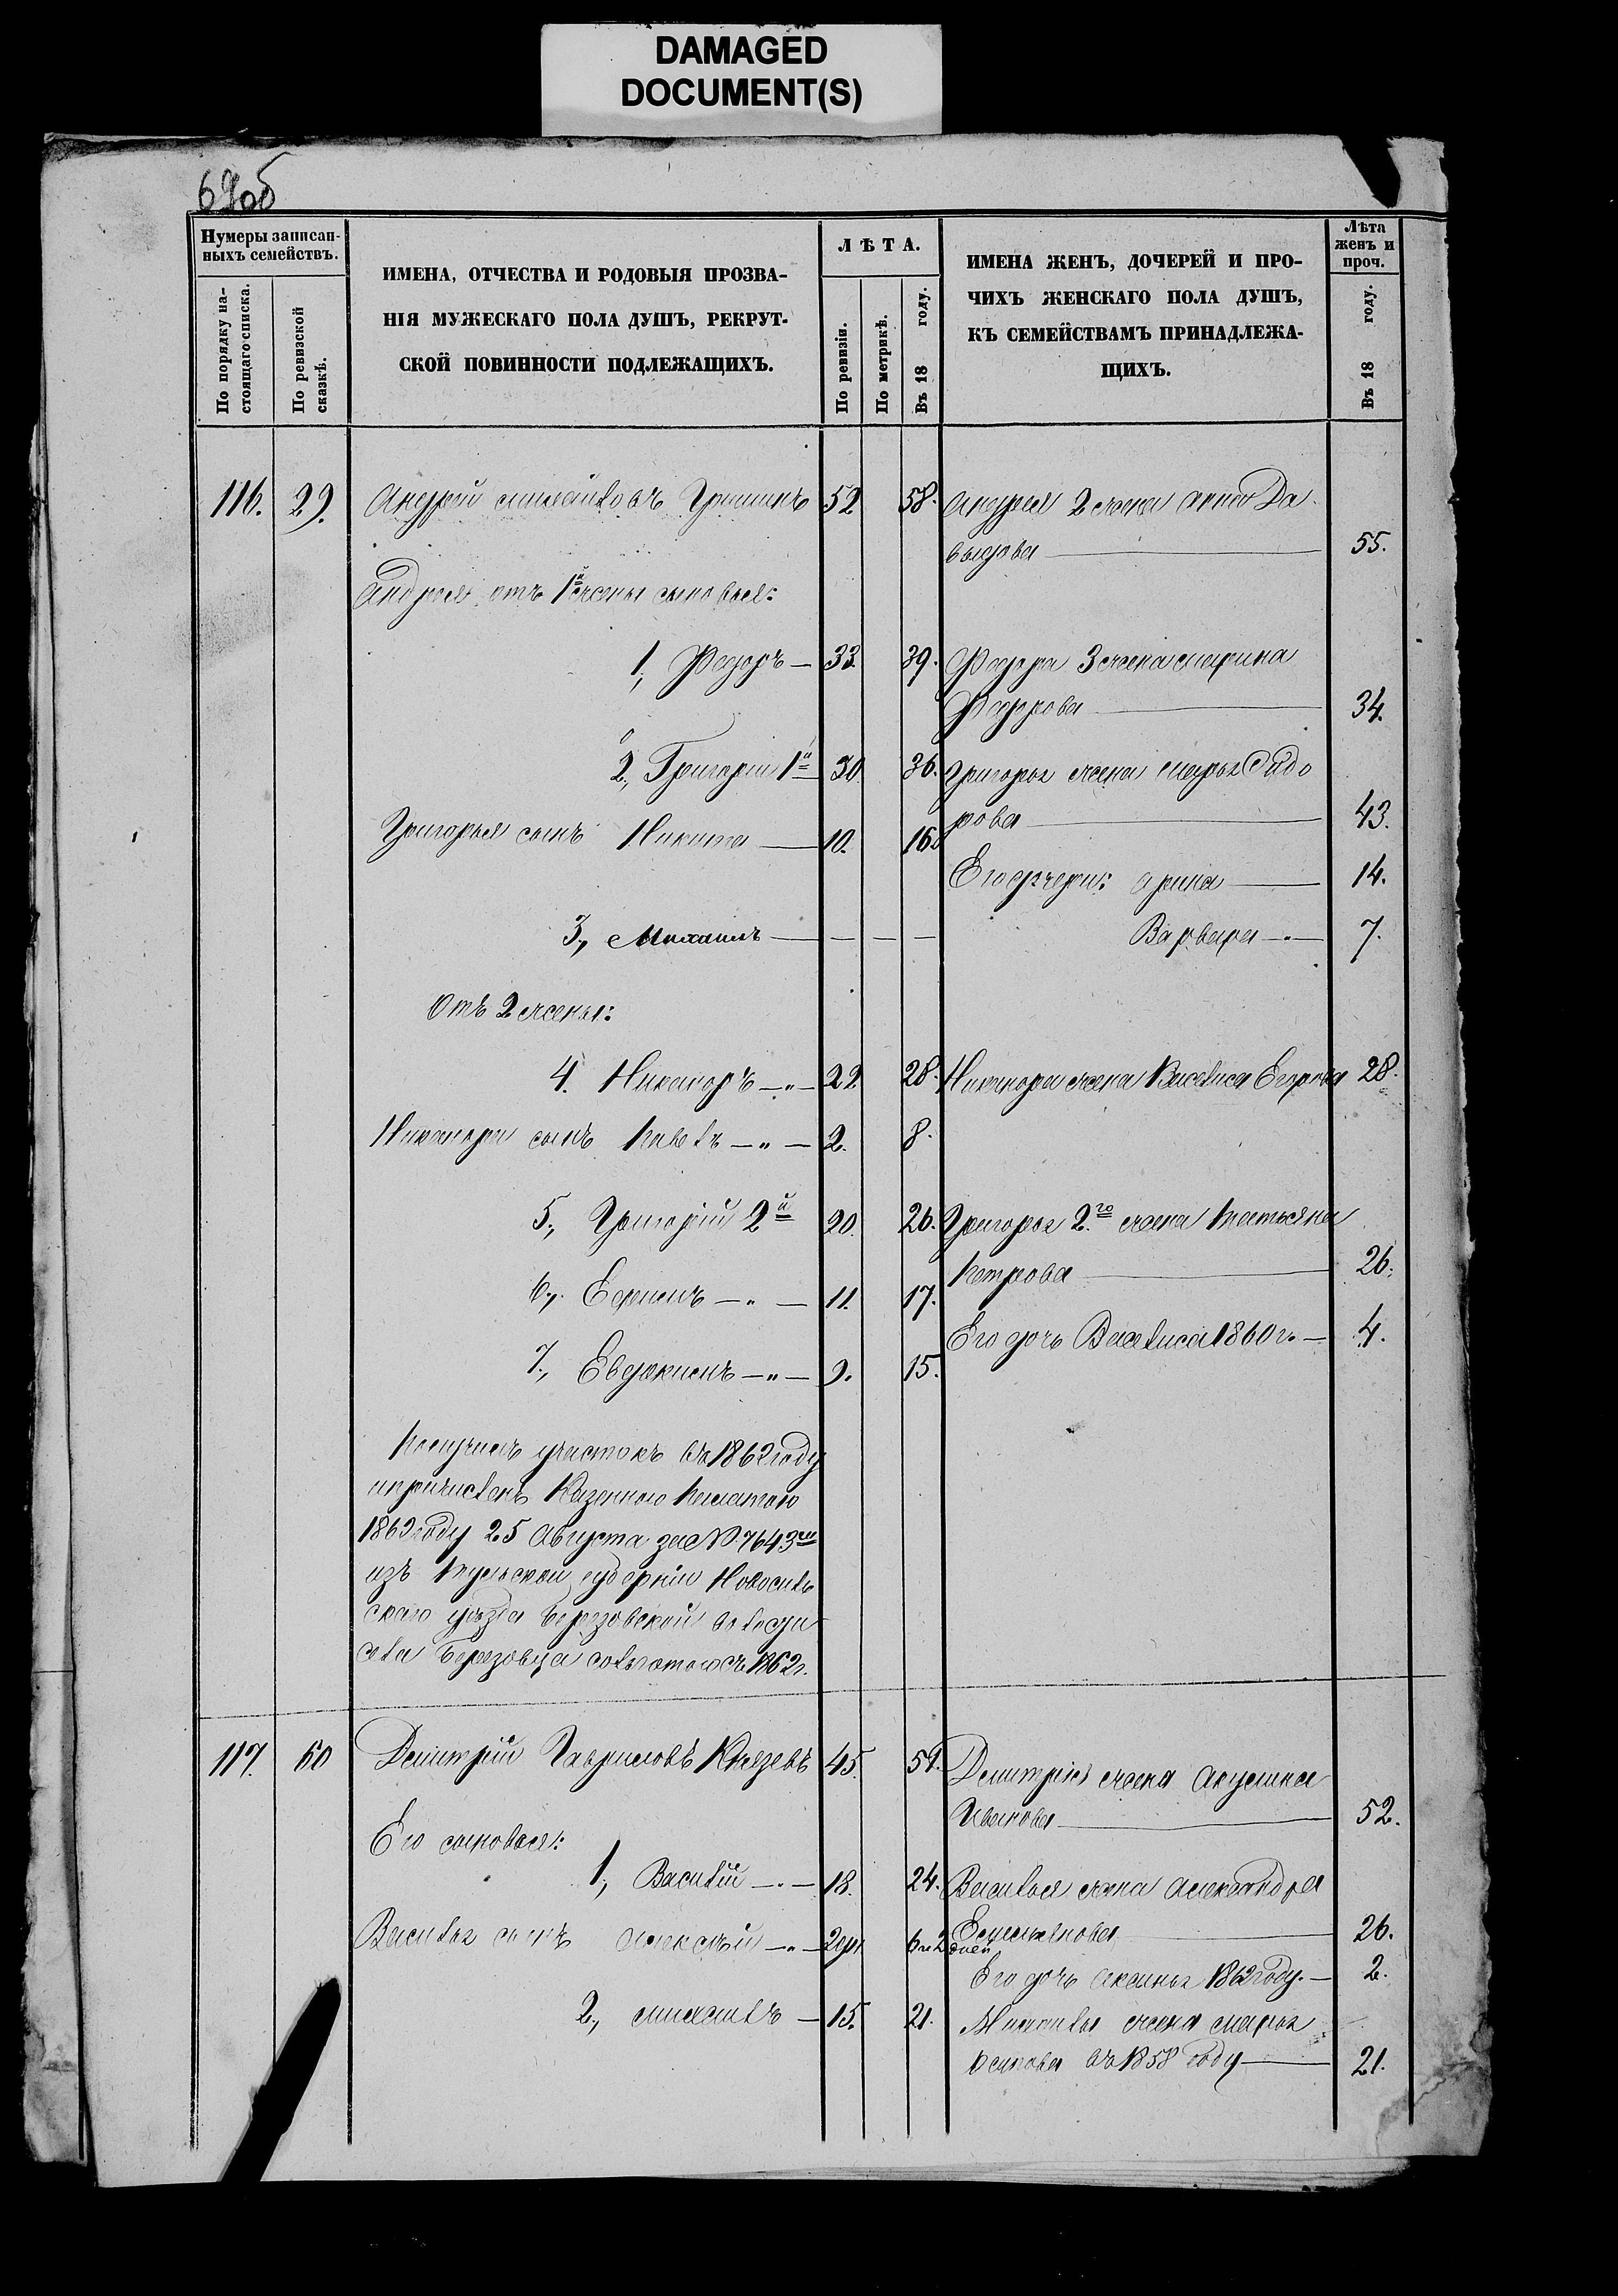 DAMAGED
DOCUMENT(S)
69об
Нумеры записан-
ныхъ семействъ.
По порядку на-
стоящаго списка.
По ревизской
сказкѣ.
ИМЕНА, ОТЧЕСТВА И РОДОВЫЯ ПРОЗВА-
НІЯ МУЖЕСКАГО ПОЛА ДУШЪ, РЕКРУТ-
СКОЙ ПОВИННОСТИ ПОДЛЕЖАЩИХЪ.
ЛѢТА.
По ревизіи.
По метрикѣ.
Въ 18 году.
ИМЕНА ЖЕНЪ, ДОЧЕРЕЙ И ПРО-
ЧИХЪ ЖЕНСКАГО ПОЛА ДУШЪ,
КЪ СЕМЕЙСТВАМЪ ПРИНАДЛЕЖА-
ЩИХЪ.
Лѣта
женъ и
проч.
Въ 18 году.
116. 29. Андрей Михайловъ Гришинъ 52 58. Андрея 2 жена Анна Да
выдова 55.
Андрея отъ 1й жены сыновья:
1, Федоръ 33. 39. Федора 3 жена Марина
Федорова 34.
2, Григорій 1й 30. 36. Григорья жена Марья Сидо
рова 43.
Григорья сынъ Никита 10. 16.
Его дочери: Арина 14.
3, Михаилъ Варвара 7.
Отъ 2 жены:
4. Никаноръ 22. 28. Никанора жена Василиса Егорова 28.
Никанора сынъ Павелъ 2. 8.
5, Григорій 2й 20. 26. Григорья 2го жена Татьяна
Петрова 26.
6, Ефимъ 11. 17.
Его дочь Василиса 1860 г. 4.
7, Евдокимъ 9. 15.
Получилъ участокъ въ 1862 году
и причисленъ Казенною Палатою
1862 году 25 Августа за № 7643м
изъ Тульской губерніи Новосиль
скаго уѣзда Березовской волости
села Березовца со льготою съ 1862 г.
117. 60 Дмитрій Гавриловъ Князевъ 45. 51. Дмитрія жена Акулина
Иванова 52.
Его сыновья:
1, Василій 18. 24. Василья жена Александра
Емельянова 26.
Василья сынъ Алексѣй 2 дн. 6 и 2 дней
Его дочь Аксинья 1862 году. 2.
2, Михаилъ 15. 21. Михаилы жена Марья
Осипова въ 1858 году 21.